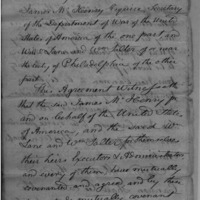 James McHenry Esquire Secretary
of the Department of War of the United
States of America of the one part and
Lane and Wm Salter of or near
the City of Philadelphia of the other
part.
This Agreement Witnesseth
that the said James McHenry for
and on behalf of the United States
of America, and the said
Lane and Wm Salter for themselves
their heirs Executors & Administrators
and every of them have mutually
covenanted and agreed and by these
mutually covenant